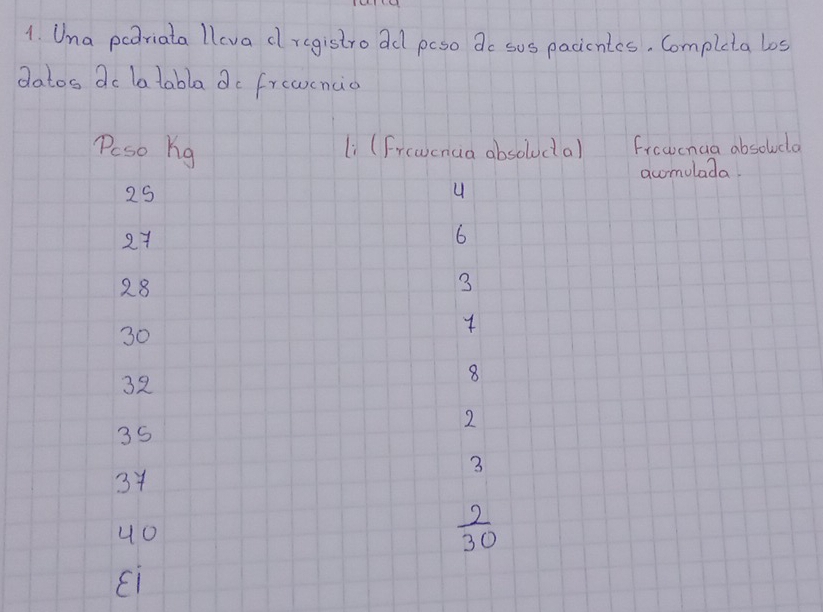 1. Una pedriata lleva el registro del peso de sus pacientes. Completa los
datos de la tabla de frecuencia
Peso Kg li (Frecuencia absolueta) Frecuencia absolueta
acomulada.
25 4
27 6
28 3
30 7
32 8
35 2
37 3
40 2
30
Ei